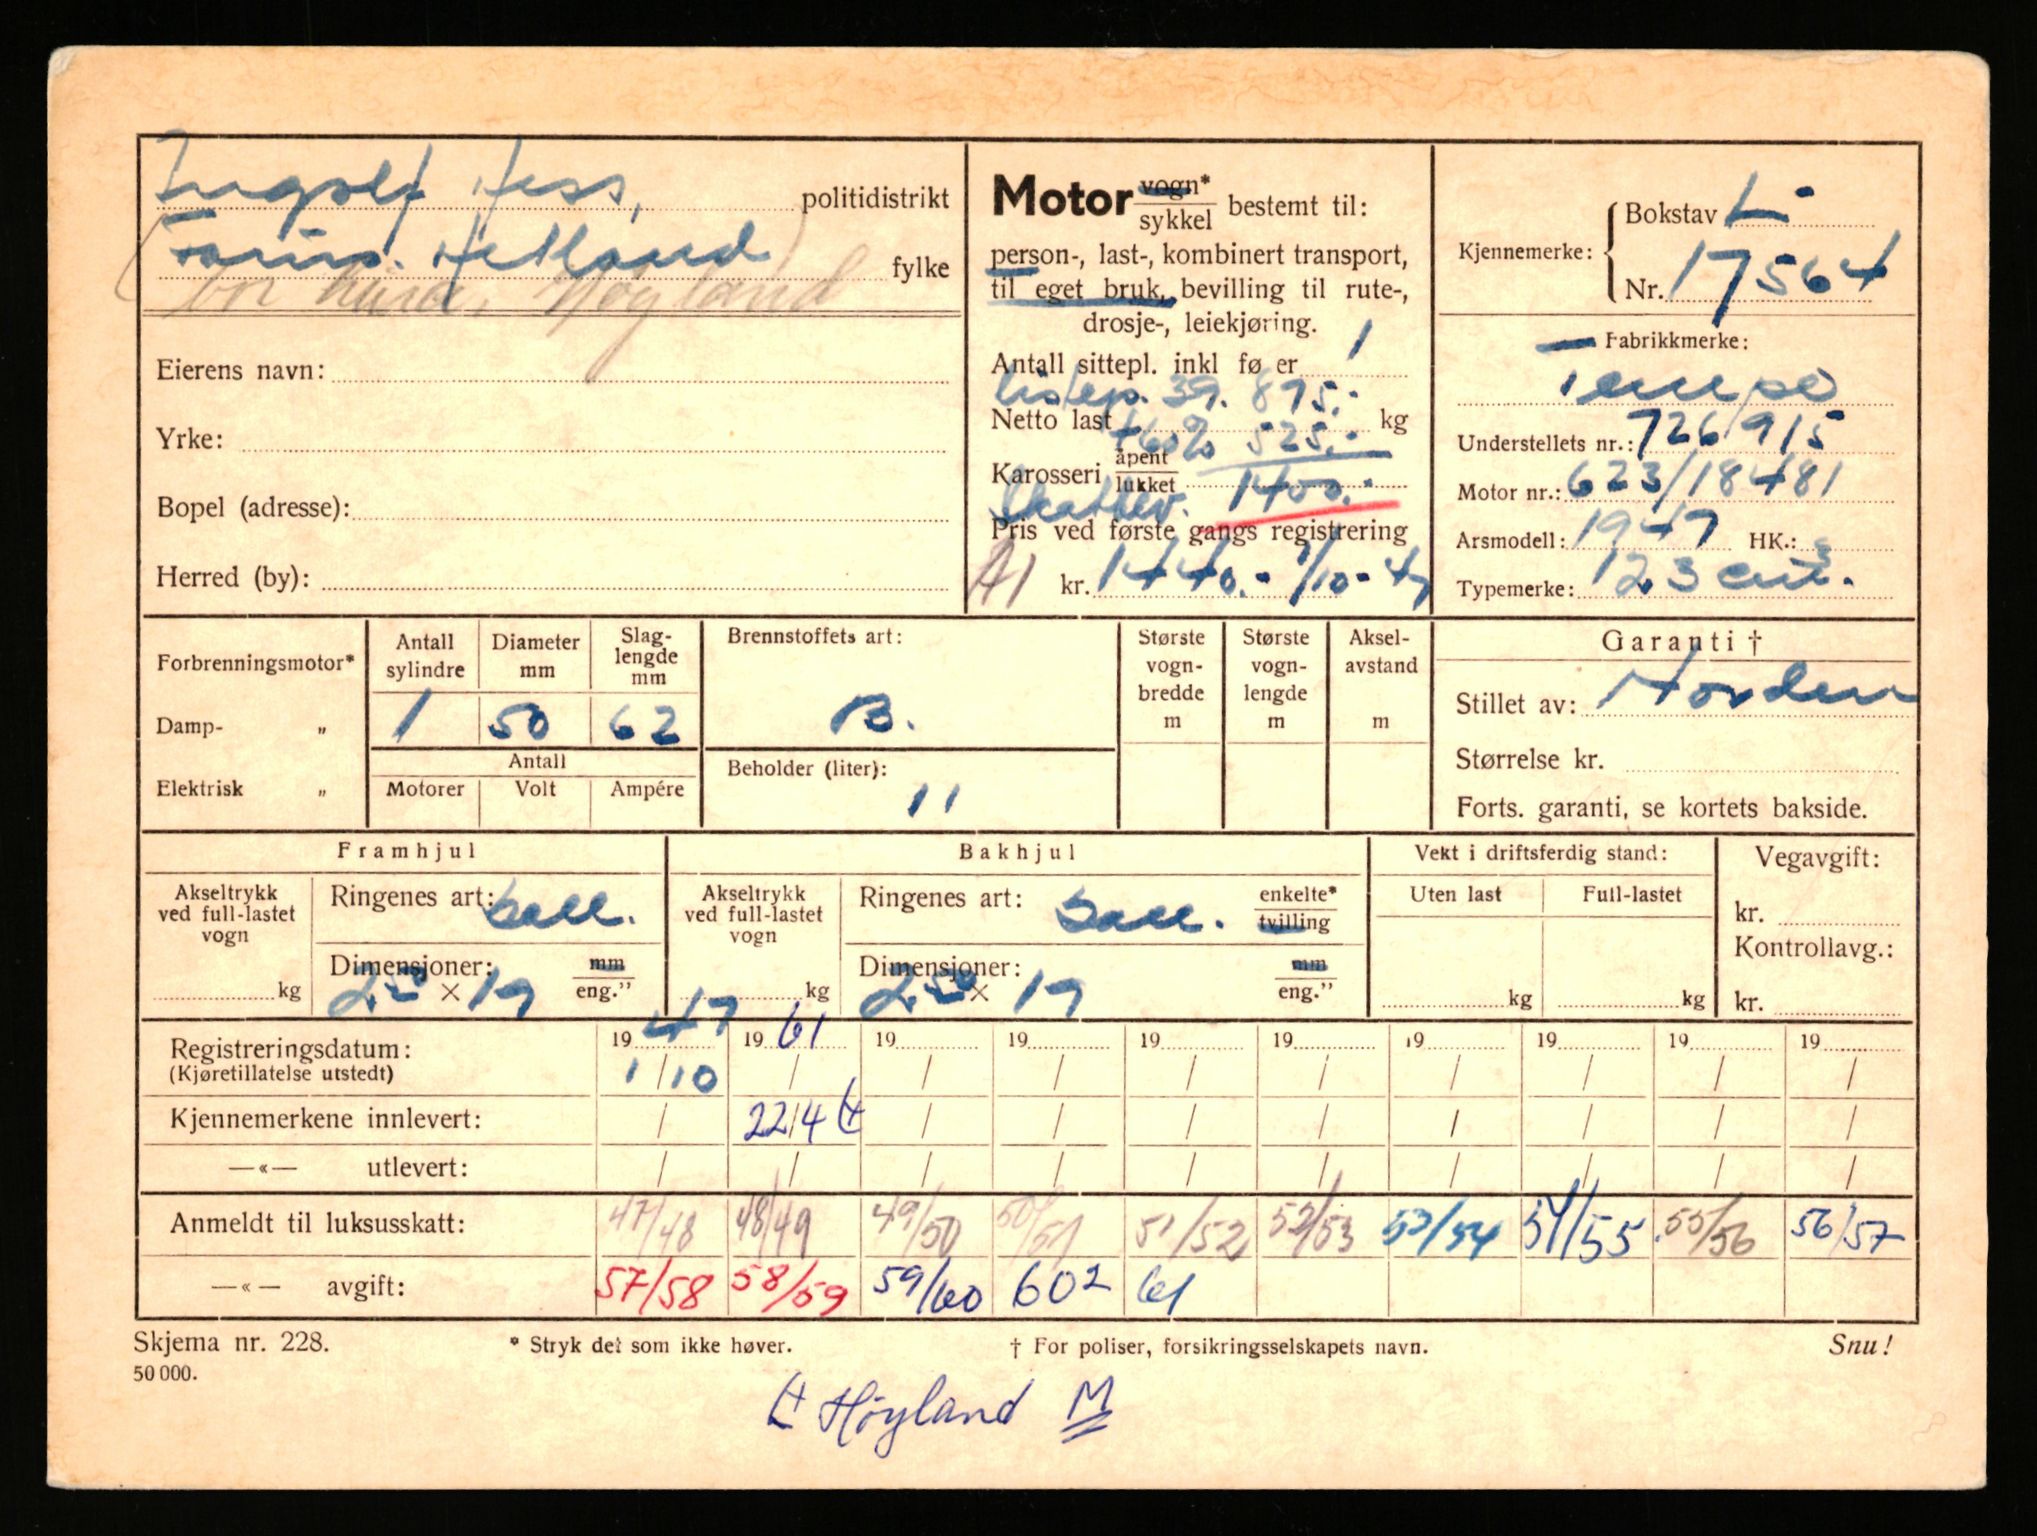 Ingolf Hess, politidistrikt
Forus. Hetland fylke
bor Lura, Høyland
Eierens navn:
Yrke:
Bopel (adresse):
Herred (by):
Motor vogn* / sykkel bestemt til:
person-, last-, kombinert transport,
til eget bruk, bevilling til rute-,
drosje-, leiekjøring.
Antall sittepl. inkl fø er 1
listep. 39. 875.-
Netto last kg
+60% 525.-
Karosseri åpent / lukket 1400.-
Skattev.
Pris ved første gangs registrering
A1 kr. 1440.- 1/10-47
Kjennemerke: Bokstav L-
Nr. 17564
Fabrikkmerke:
Tempo
Understellets nr.: 726/915
Motor nr.: 623/18481
Arsmodell: 1947 HK.:
Typemerke: 123 cm3.
Forbrenningsmotor*
Damp- "
Elektrisk "
Antall sylindre 1
Diameter mm 50
Slag-lengde mm 62
Antall
Motorer Volt Ampére
Brennstoffets art:
B.
Beholder (liter):
11
Største vogn-bredde m
Største vogn-lengde m
Aksel-avstand m
Garanti †
Stillet av: Norden
Størrelse kr.
Forts. garanti, se kortets bakside.
Framhjul
Akseltrykk ved full-lastet vogn
kg
Ringenes art: ball.
Dimensjoner: mm / eng."
250 × 19
Bakhjul
Akseltrykk ved full-lastet vogn
kg
Ringenes art: ball. enkelte* / tvilling
Dimensjoner: mm / eng."
250 × 19
Vekt i driftsferdig stand:
Uten last Full-lastet
kg kg
Vegavgift:
kr.
Kontrollavg.:
kr.
Registreringsdatum: 1947 1961 19 19 19 19 19 19 19 19
(Kjøretillatelse utstedt) 1/10 / / / / / / / / /
Kjennemerkene innlevert: / 22/4 / / / / / / / /
—«— utlevert: / / / / / / / / / /
Anmeldt til luksusskatt: 47/48 48/49 49/50 50/51 51/52 52/53 53/54 54/55 55/56 56/57
—«— avgift: 57/58 58/59 59/60 602 61
Skjema nr. 228. * Stryk det som ikke høver. † For poliser, forsikringsselskapets navn. Snu!
50 000.
Høyland M